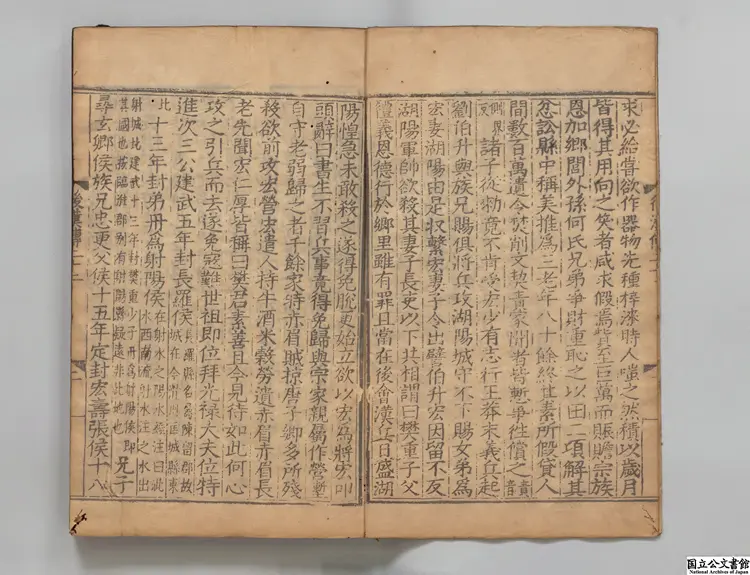 求必給嘗欲作器物先種梓漆時人嗤之然積以歲月
皆得其用向之笑者咸求假焉貲至巨萬而賑贍宗族
恩加鄉閭外孫何氏兄弟爭財重恥之以田二頃解其
忿訟縣中稱美推爲三老年八十餘終其素所假貸人
間數百萬遺令焚削文契責家聞者皆慙爭往償之責音
側界反諸子從勑竟不肯受宏少有志行王莽末義兵起
劉伯升與族兄賜俱將兵攻湖陽城守不下賜女弟爲
宏妻湖陽由是收繫宏妻子令出譬伯升宏因留不反
湖陽軍帥欲殺其妻子長吏以下共相謂曰樊重子父
禮義恩德行於鄉里雖有罪且當在後會漢兵日盛湖
陽惶急未敢殺之遂得免脫更始立欲以宏爲將宏叩
頭辭曰書生不習兵事竟得免歸與宗家親屬作營塹
自守老弱歸之者千餘家時赤眉賊掠唐子鄉多所殘
殺欲前攻宏營宏遣人持牛酒米穀勞遺赤眉赤眉長
老先聞宏仁厚皆稱曰樊君素善且今見待如此何心
攻之引兵而去遂免寇難世祖即位拜光祿大夫位特
進次三公建武五年封長羅侯長羅縣名屬陳留郡故城在今滑州匡城縣東
北十三年封弟丹爲射陽侯在射水之陽水經注曰泚水西南流射水注之水出
射城北建武十三年封樊重少子丹爲射陽侯即其國也按臨淮郡別有射陽縣疑遠非此地也兄子
尋玄鄉侯族兄忠更父侯十五年定封宏壽張侯十八
国立公文書館
National Archives of Japan